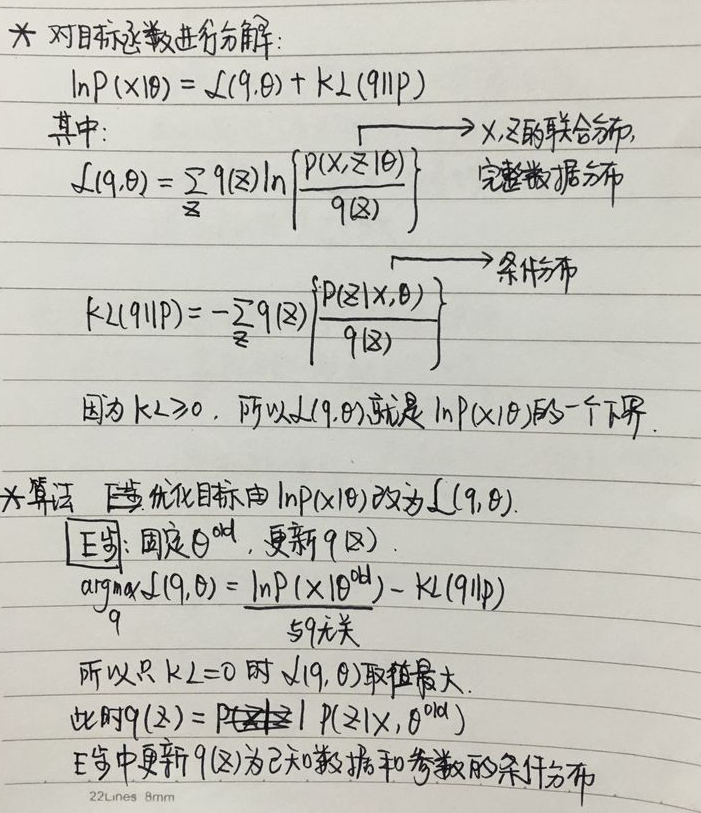 * 对目标函数进行分解:
lnP(X|θ) = L(q,θ) + KL(q||p)
其中:
→ X,Z的联合分布,
L(q,θ) = Σ_Z q(Z) ln { P(X,Z|θ) / q(Z) } 完整数据分布
→ 条件分布
KL(q||p) = -Σ_Z q(Z) { P(Z|X,θ) / q(Z) }
因为KL≥0, 所以L(q,θ)就是lnP(X|θ)的一个下界.
* 算法 优化目标由lnP(X|θ)改为L(q,θ).
E步: 固定θ^old, 更新q(Z).
argmax_q L(q,θ) = lnP(X|θ^old) - KL(q||p)
与q无关
所以只KL=0时L(q,θ)取值最大.
此时q(Z) = P(Z|X,θ^old)
E步中更新q(Z)为已知数据和参数的条件分布
22Lines 8mm